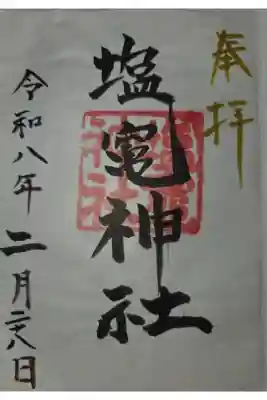 奉拝
塩竈神社
令和八年二月二八日